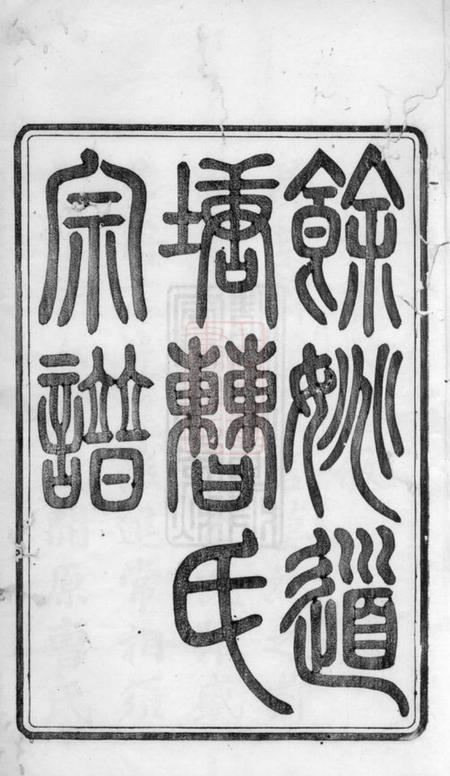 餘姚道
塘曹氏
宗譜